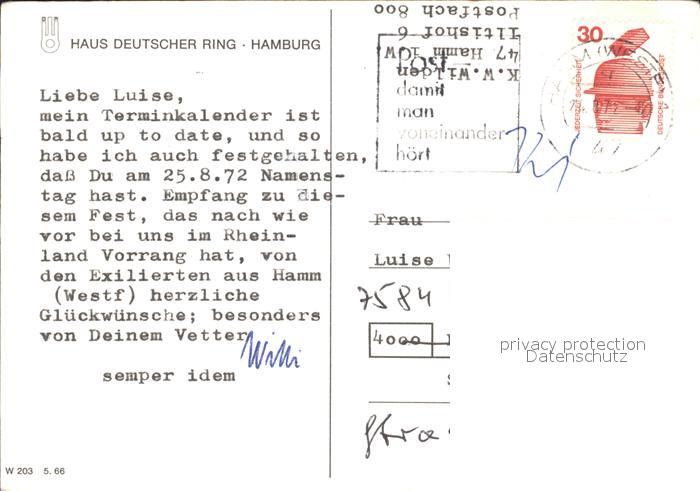 HAUS DEUTSCHER RING · HAMBURG
Liebe Luise,
mein Terminkalender ist
bald up to date, und so
habe ich auch festgehalten,
daß Du am 25.8.72 Namens-
tag hast. Empfang zu die-
sem Fest, das nach wie
vor bei uns im Rhein-
land Vorrang hat, von
den Exilierten aus Hamm
(Westf) herzliche
Glückwünsche; besonders
von Deinem Vetter
Willi
semper idem
W 203 5.66
K.W.Wilden
47 Hamm
Iltishof 6
Postfach 800
damit
man
voneinander
hört
30
JEDERZEIT SICHERHEIT
DEUTSCHE BUNDESPOST
47
Frau
Luise
7584
4000
privacy protection
Datenschutz